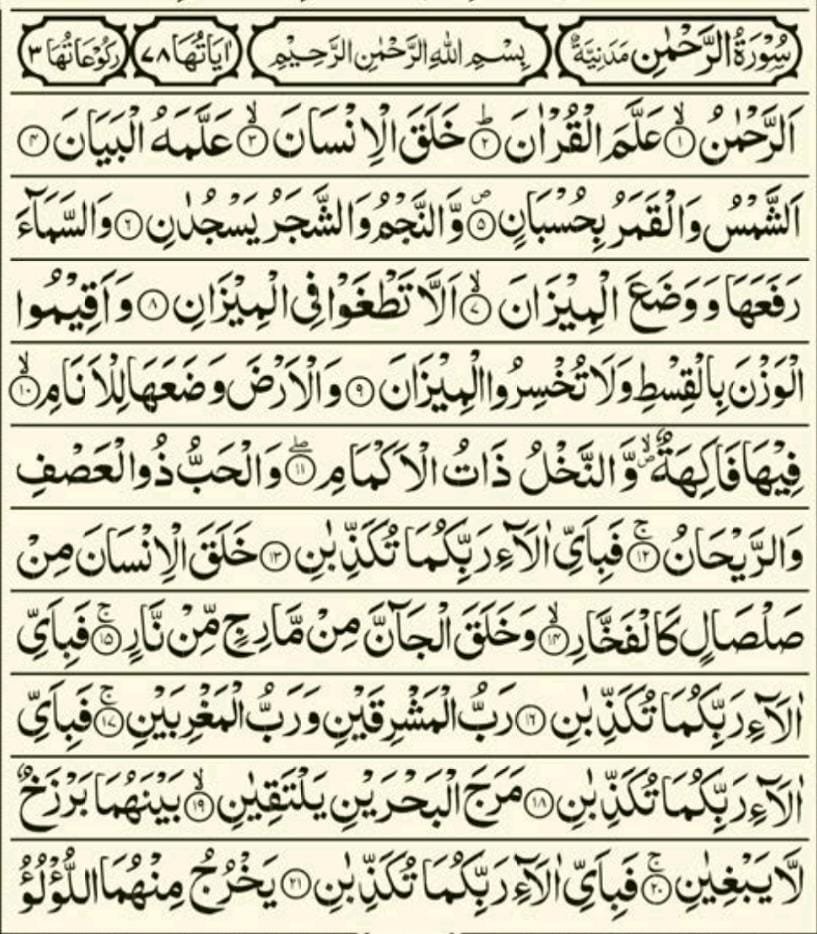 سُوْرَةُ الرَّحْمٰنِ مَدَنِيَّةٌ بِسْمِ اللهِ الرَّحْمٰنِ الرَّحِيْمِ اٰيَاتُهَا ٧٨ رُكُوْعَاتُهَا ٣
اَلرَّحْمٰنُ ۙ﴿١﴾ عَلَّمَ الْقُرْاٰنَ ؕ﴿٢﴾ خَلَقَ الْاِنْسَانَ ۙ﴿٣﴾ عَلَّمَهُ الْبَيَانَ ﴿٤﴾
اَلشَّمْسُ وَالْقَمَرُ بِحُسْبَانٍ ۪﴿٥﴾ وَّالنَّجْمُ وَالشَّجَرُ يَسْجُدٰنِ ﴿٦﴾ وَالسَّمَآءَ
رَفَعَهَا وَوَضَعَ الْمِيْزَانَ ۙ﴿٧﴾ اَلَّا تَطْغَوْا فِى الْمِيْزَانِ ﴿٨﴾ وَاَقِيْمُوا
الْوَزْنَ بِالْقِسْطِ وَلَا تُخْسِرُوا الْمِيْزَانَ ﴿٩﴾ وَالْاَرْضَ وَضَعَهَا لِلْاَنَامِ ۙ﴿١٠﴾
فِيْهَا فَاكِهَةٌ ۪ۙ وَّالنَّخْلُ ذَاتُ الْاَكْمَامِ ۖ﴿١١﴾ وَالْحَبُّ ذُو الْعَصْفِ
وَالرَّيْحَانُ ۚ﴿١٢﴾ فَبِاَىِّ اٰلَآءِ رَبِّكُمَا تُكَذِّبٰنِ ﴿١٣﴾ خَلَقَ الْاِنْسَانَ مِنْ
صَلْصَالٍ كَالْفَخَّارِ ۙ﴿١٤﴾ وَخَلَقَ الْجَآنَّ مِنْ مَّارِجٍ مِّنْ نَّارٍ ۚ﴿١٥﴾ فَبِاَىِّ
اٰلَآءِ رَبِّكُمَا تُكَذِّبٰنِ ﴿١٦﴾ رَبُّ الْمَشْرِقَيْنِ وَرَبُّ الْمَغْرِبَيْنِ ۚ﴿١٧﴾ فَبِاَىِّ
اٰلَآءِ رَبِّكُمَا تُكَذِّبٰنِ ﴿١٨﴾ مَرَجَ الْبَحْرَيْنِ يَلْتَقِيٰنِ ۙ﴿١٩﴾ بَيْنَهُمَا بَرْزَخٌ
لَّا يَبْغِيٰنِ ۚ﴿٢٠﴾ فَبِاَىِّ اٰلَآءِ رَبِّكُمَا تُكَذِّبٰنِ ﴿٢١﴾ يَخْرُجُ مِنْهُمَا اللُّؤْلُؤُ